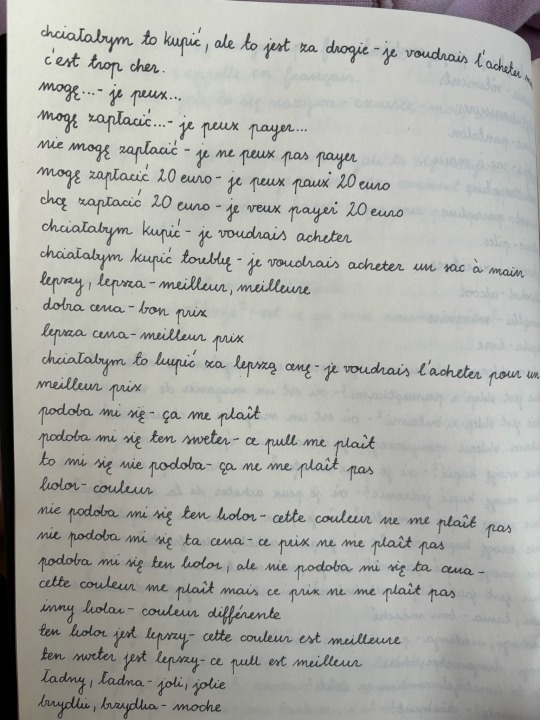 chciałabym to kupić, ale to jest za drogie - je voudrais l'acheter
c'est trop cher.
mogę...- je peux...
mogę zapłacić...- je peux payer...
nie mogę zapłacić - je ne peux pas payer
mogę zapłacić 20 euro - je peux 20 euro
chcę zapłacić 20 euro - je veux payer 20 euro
chciałabym kupić - je voudrais acheter
chciałabym kupić torebkę - je voudrais acheter un sac à main
lepszy, lepsza - meilleur, meilleure
dobra cena - bon prix
lepsza cena - meilleur prix
chciałabym to kupić za lepszą cenę - je voudrais l'acheter pour un
meilleur prix
podoba mi się - ça me plaît
podoba mi się ten sweter - ce pull me plaît
to mi się nie podoba - ça ne me plaît pas
kolor - couleur
nie podoba mi się ten kolor - cette couleur ne me plaît pas
nie podoba mi się ta cena - ce prix ne me plaît pas
podoba mi się ten kolor, ale nie podoba mi się ta cena -
cette couleur me plaît mais ce prix ne me plaît pas
inny kolor - couleur différente
ten kolor jest lepszy - cette couleur est meilleure
ten sweter jest lepszy - ce pull est meilleur
ładny, ładna - joli, jolie
brzydki, brzydka - moche